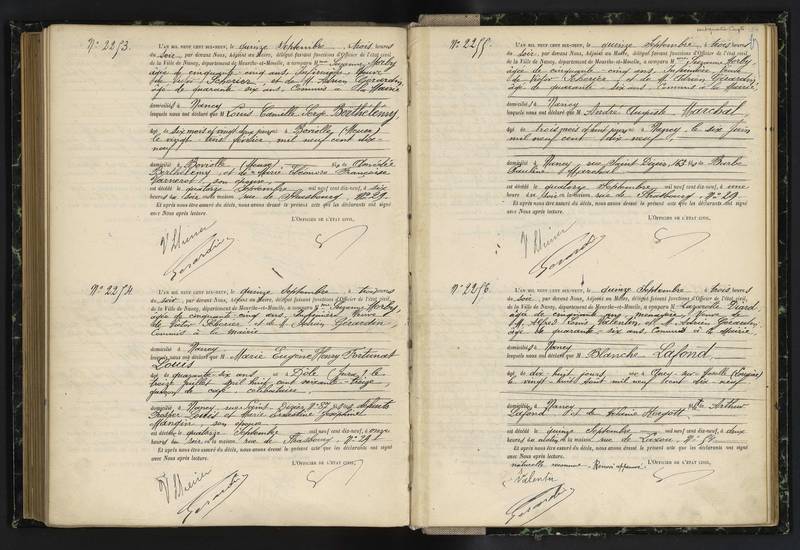 N° 2253.
L'AN MIL NEUF CENT DIX-NEUF, le quinze Septembre à trois heures
du soir, par devant Nous, Adjoint au Maire, délégué faisant fonctions d'Officier de l'état civil
de la Ville de Nancy, département de Meurthe-et-Moselle, a comparu Mme Suzanne Morby
âgée de cinquante-cinq ans, Infirmière, Veuve
de Victor et de M. Adrien Gérardin
âgé de quarante six ans, Commis à la Mairie
domiciliés à Nancy
lesquels nous ont déclaré que M Louis Camille Serge Berthélemy
âgé de six mois et vingt deux jours à Boviolles (Meuse)
le vingt février mil neuf cent dix-
neuf
domicilié à Boviolle (Meuse) fils de
Berthélemy et de Marie Léonore Françoise
Varnerot son épouse
est décédé le quatorze Septembre mil neuf cent dix-neuf, à six
heures du soir, en la maison rue de Strasbourg, N° 29
Et après nous être assuré du décès, nous avons dressé le présent acte que les déclarants ont signé
avec Nous après lecture.
L'OFFICIER DE L'ÉTAT CIVIL,
Gérardin
N° 2254.
L'AN MIL NEUF CENT DIX-NEUF, le quinze Septembre à trois heures
du soir, par devant Nous, Adjoint au Maire, délégué faisant fonctions d'Officier de l'état civil
de la Ville de Nancy, département de Meurthe-et-Moselle, a comparu Mme Suzanne Morby
âgée de cinquante-cinq ans, Infirmière, Veuve
de Victor et de M. Adrien Gérardin,
Commis à la mairie
domiciliés à Nancy
lesquels nous ont déclaré que M Marie Eugène Henry Fortunat
Louis
âgé de quarante-six ans, né à Dôle (Jura), le
treize juillet mil huit cent soixante-treize,
garçon de café, célibataire,
domicilié à Nancy, rue Saint-Dizier, N° 87, fils des défunts
Prosper Louis et Marie Ernestine Joséphine
Mangin, son épouse
est décédé le quatorze Septembre mil neuf cent dix-neuf, à onze
heures du soir, en la maison rue de Strasbourg, N° 29
Et après nous être assuré du décès, nous avons dressé le présent acte que les déclarants ont signé
avec Nous après lecture.
L'OFFICIER DE L'ÉTAT CIVIL,
Gérardin
N° 2255.
L'AN MIL NEUF CENT DIX-NEUF, le quinze Septembre à trois heures
du soir, par devant Nous, Adjoint au Maire, délégué faisant fonctions d'Officier de l'état civil
de la Ville de Nancy, département de Meurthe-et-Moselle, a comparu Mme Suzanne Morby
âgée de cinquante-cinq ans, Infirmière, Veuve
de Victor et de M. Adrien Gérardin
âgé de quarante six ans, Commis à la Mairie
domiciliés à Nancy
lesquels nous ont déclaré que M André Auguste Marchal
âgé de trois mois huit jours, né à Nancy, le six juin
mil neuf cent dix neuf,
domicilié à Nancy, rue Saint Dizier, 163, fils de Barbe
Pauline Marchal
est décédé le quatorze Septembre mil neuf cent dix-neuf, à onze
heures du soir, en la maison rue de Strasbourg, N° 29
Et après nous être assuré du décès, nous avons dressé le présent acte que les déclarants ont signé
avec Nous après lecture.
L'OFFICIER DE L'ÉTAT CIVIL,
Gérardin
N° 2256.
L'AN MIL NEUF CENT DIX-NEUF, le quinze Septembre à trois heures
du soir, par devant Nous, Adjoint au Maire, délégué faisant fonctions d'Officier de l'état civil
de la Ville de Nancy, département de Meurthe-et-Moselle, a comparu M
âgée de cinquante ans, ménagère, Veuve de
Alfred Louis Valentin, et M. Adrien Gérardin,
âgé de quarante-six ans, Commis à la Mairie
domiciliés à Nancy
lesquels nous ont déclaré que M Blanche Lafond
âgé de dix-huit jours, née à
le vingt-huit août mil neuf cent dix-neuf
domicilié à Nancy fille Arthur
Lafond et de
est décédé le quinze Septembre mil neuf cent dix-neuf, à deux
heures du matin, en la maison rue de Laxou, N°
Et après nous être assuré du décès, nous avons dressé le présent acte que les déclarants ont signé
avec Nous après lecture.
L'OFFICIER DE L'ÉTAT CIVIL,
naturelle reconnue. Renvoi approuvé.
Valentin
Gérardin